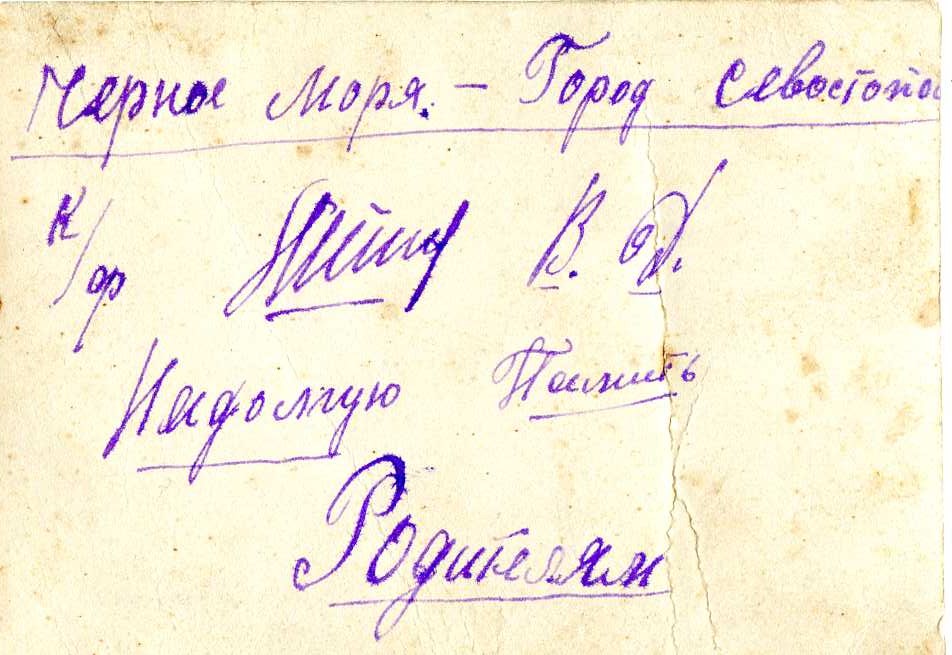 Черное Моря. - Город Севастопо
К/ф В. Д.
Надолгую Память
Родителям